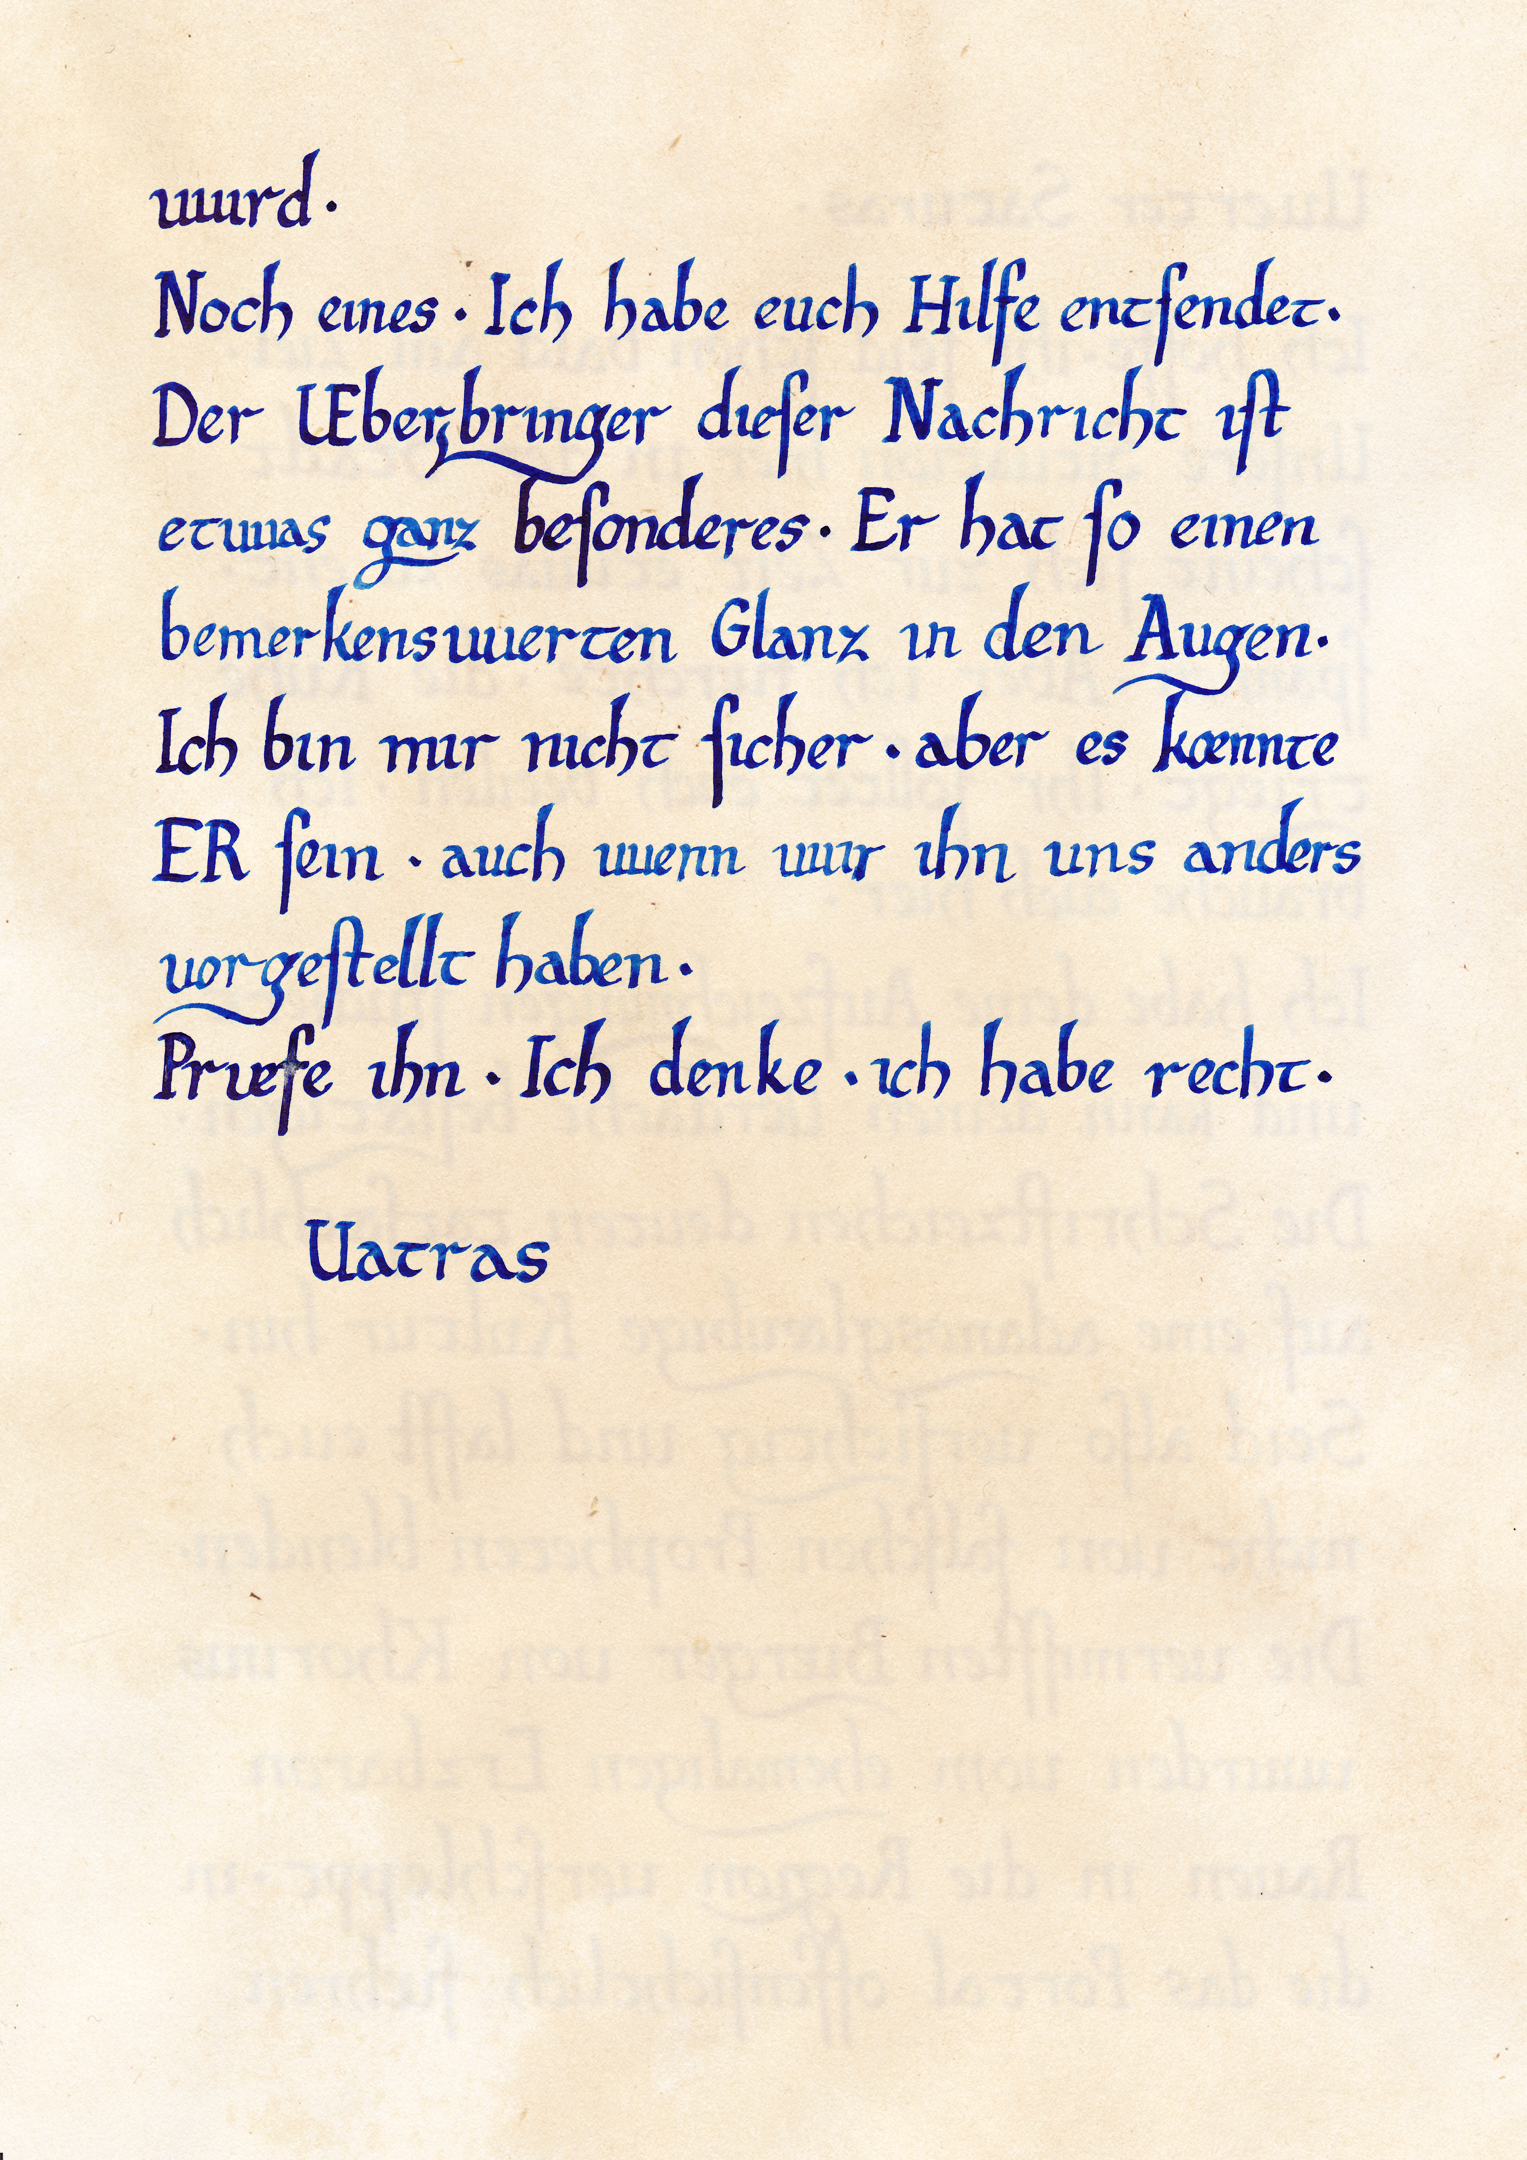 uuurd·
Noch eines· Ich habe euch Hilfe entſendet·
Der UEberbringer dieſer Nachricht iſt
etuuas ganz beſonderes· Er hat ſo einen
bemerkensuuerten Glanz in den Augen·
Ich bin mir nicht ſicher· aber es kœnnte
ER ſein· auch uuenn uuir ihn uns anders
uorgeſtellt haben·
Pruefe ihn· Ich denke· ich habe recht·
Uatras